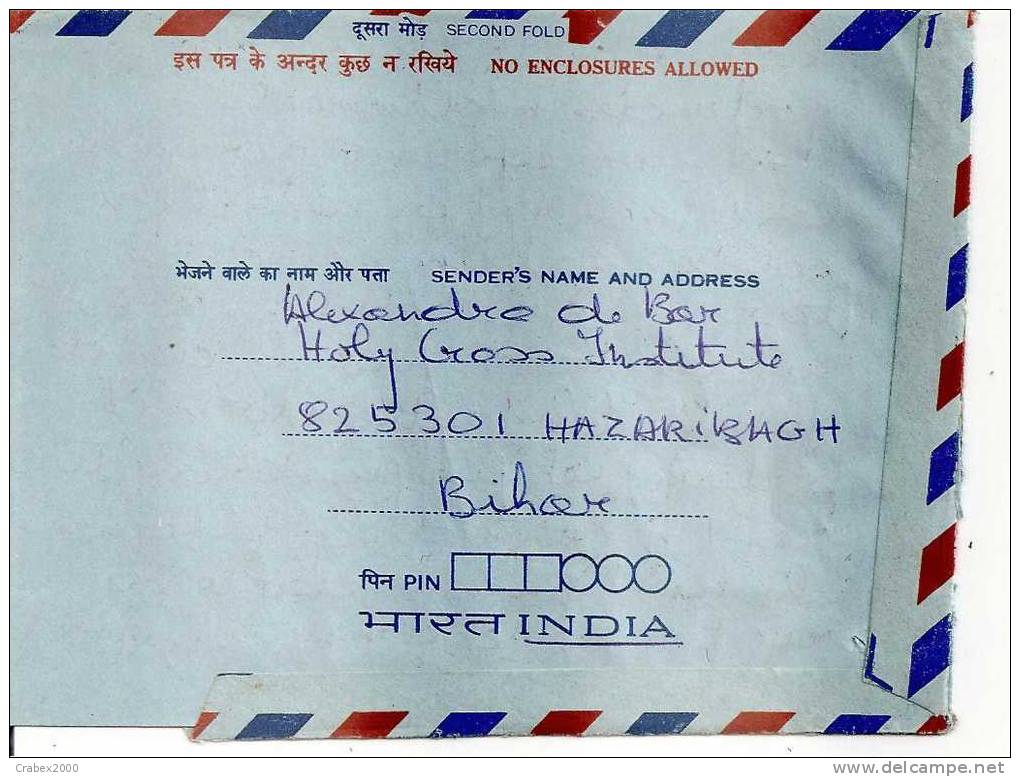 दूसरा मोड़ SECOND FOLD
इस पत्र के अन्दर कुछ न रखिये NO ENCLOSURES ALLOWED
भेजने वाले का नाम और पता SENDER'S NAME AND ADDRESS
Alexandre de Bar
Holy Cross Institute
825301 HAZARiBAGH
Bihar
पिन PIN
भारत INDIA
Crabex2000
www.delcampe.net